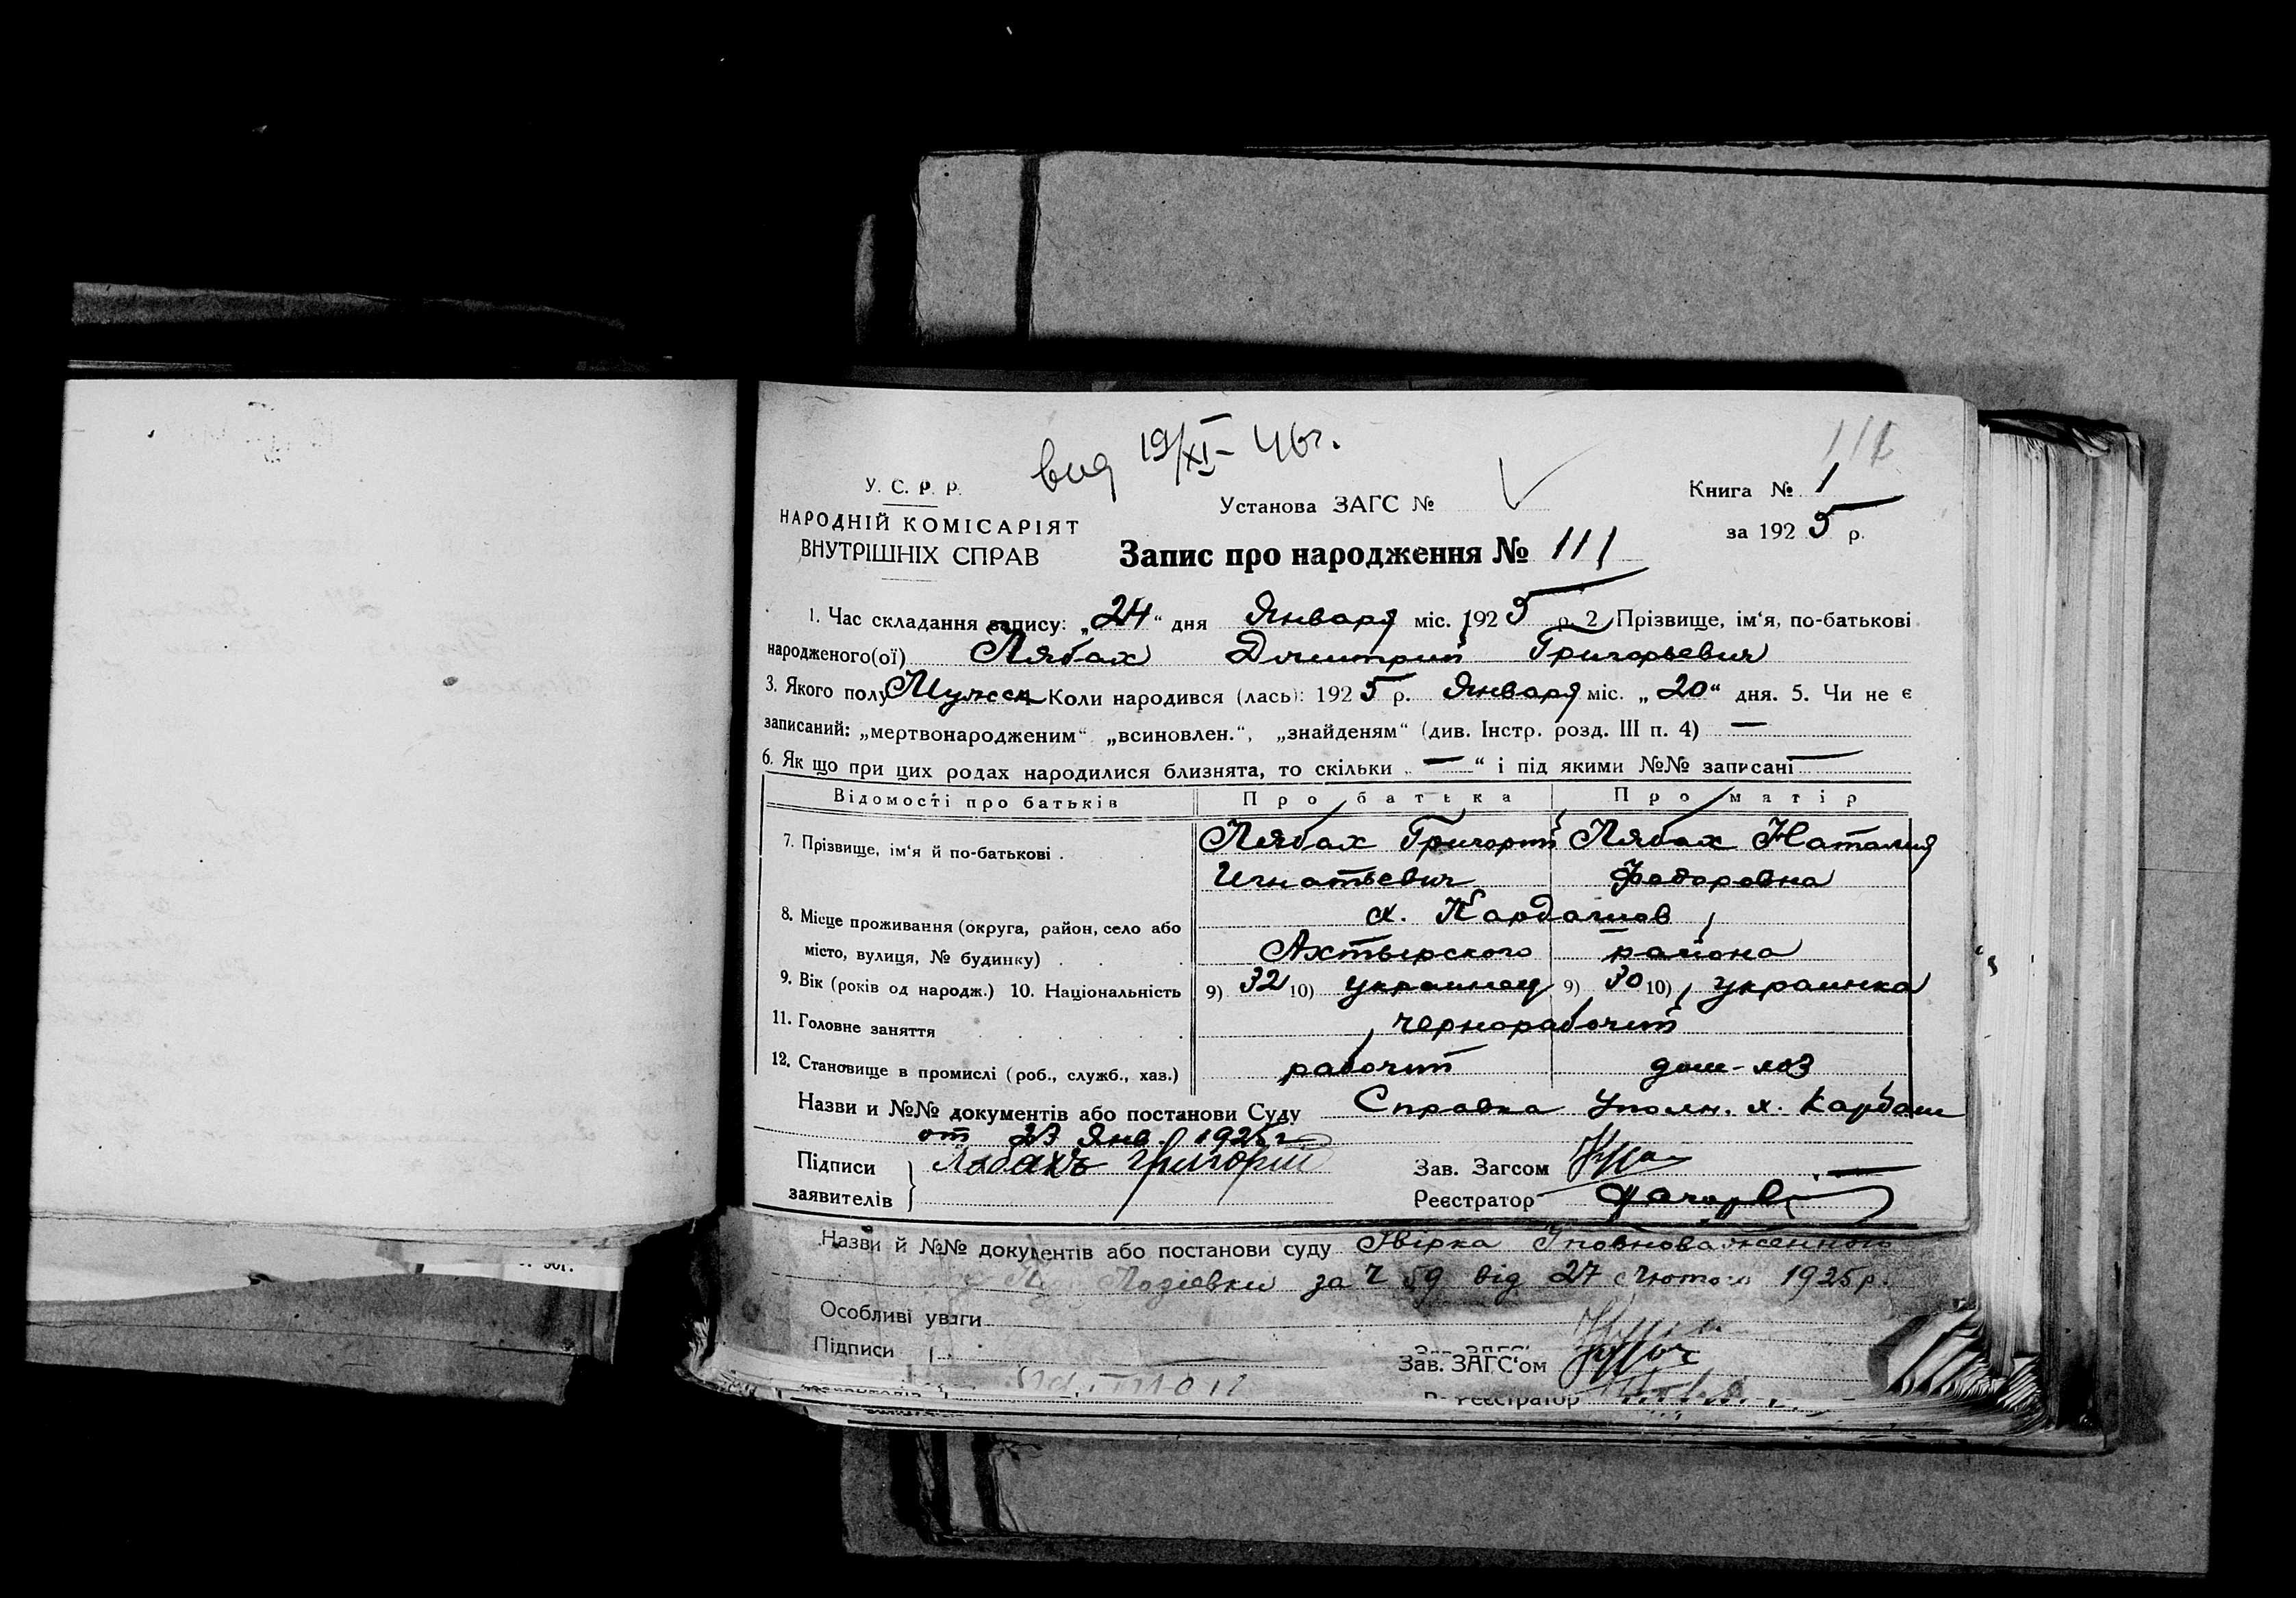 вид 19/XI- 46г.
У. С. Р. Р.
НАРОДНІЙ КОМІСАРІЯТ
ВНУТРІШНІХ СПРАВ
Установа ЗАГС №
Книга № 1
за 1925 р.
Запис про народження № 111
1. Час складання запису: „24“ дня Января міс. 1925 р. 2. Прізвище, ім‘я, по-батькові
народженого(ої) Лябах Димитрий Григорьевич
3. Якого полу Мужск Коли народився (лась): 1925 р. Января міс. „20“ дня. 5. Чи не є
записаний: „мертвонародженим“ „всиновлен.“, „знайденям“ (див. Інстр. розд. III п. 4) —
6. Як що при цих родах народилися близнята, то скільки „—“ і під якими №№ записані —
Відомості про батьків Про батька Про матір
7. Прізвище, ім‘я й по-батькові . Лябах Григорий Лябах Наталия
Игнатьевич Федоровна
8. Місце проживання (округа, район, село або х. Кардашов
місто, вулиця, № будинку) . Ахтырского района
9. Вік (років од народж.) 10. Національність 9) 32 10) украинец 9) 30 10) украинка
11. Головне заняття чернорабочий
12. Становище в промислі (роб., служб., хаз.) рабочий дом-хоз
Назви и №№ документів або постанови Суду Справка Уполн. х. Кардаш
от 23 Янв. 1925 г
Підписи Лябахъ Григорий Зав. Загсом
заявителів Реєстратор
Назви й №№ документів або постанови суду Звірка Уповноваженного
Лозіевки за Ч 59 від 27 Лютого 1925 р.
Особливі уваги
Підписи Зав. ЗАГС'ом
Реєстратор